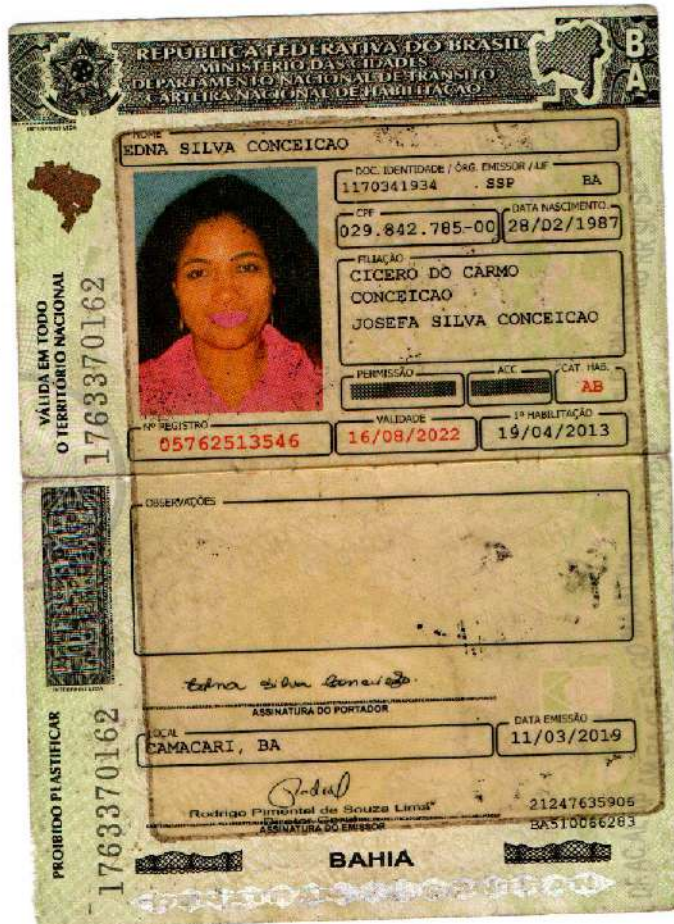 REPÚBLICA FEDERATIVA DO BRASIL
MINISTÉRIO DAS CIDADES
DEPARTAMENTO NACIONAL DE TRÂNSITO
CARTEIRA NACIONAL DE HABILITAÇÃO
BA
NOME
EDNA SILVA CONCEICAO
DOC. IDENTIDADE / ÓRG. EMISSOR / UF
1170341934 SSP BA
CPF
029.842.785-00
DATA NASCIMENTO
28/02/1987
FILIAÇÃO
CICERO DO CARMO
CONCEICAO
JOSEFA SILVA CONCEICAO
PERMISSÃO
ACC
CAT. HAB.
AB
Nº REGISTRO
05762513546
VALIDADE
16/08/2022
1ª HABILITAÇÃO
19/04/2013
VÁLIDA EM TODO
O TERRITÓRIO NACIONAL
1763370162
OBSERVAÇÕES
Edna Silva Conceição
ASSINATURA DO PORTADOR
LOCAL
CAMACARI, BA
DATA EMISSÃO
11/03/2019
Rodrigo Pimentel de Souza Lima
Diretor Geral
ASSINATURA DO EMISSOR
21247635906
BA510066283
PROIBIDO PLASTIFICAR
1763370162
BAHIA